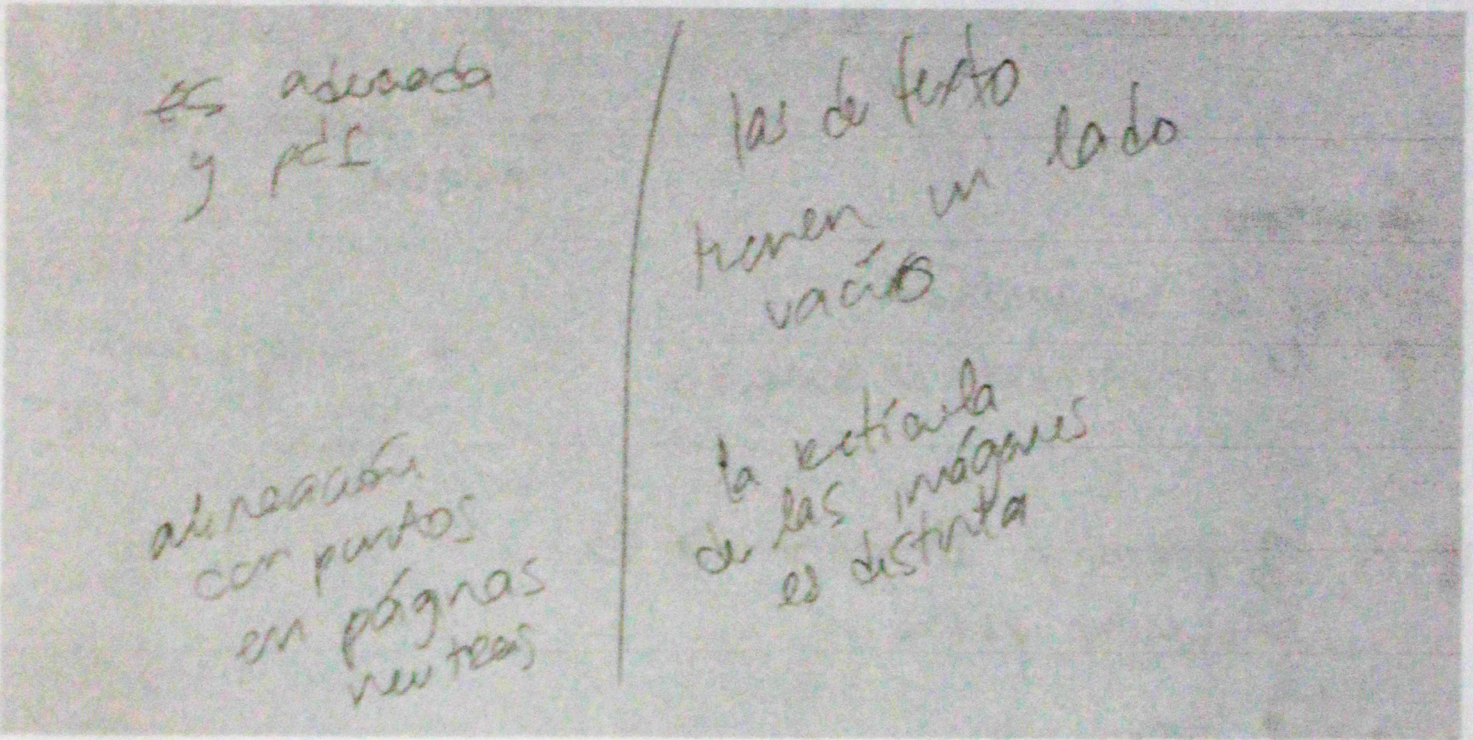 es adecuada
y pdf
alineación
con puntos
en páginas
neutras
las de texto
tienen un lado
vacío
la retícula
de las imágenes
es distinta